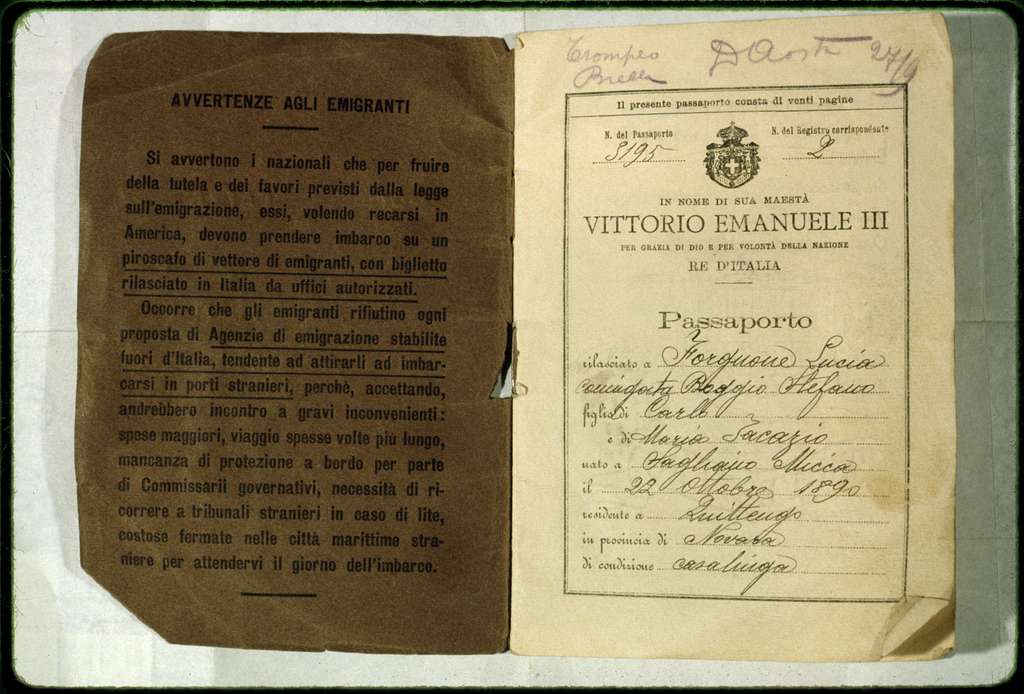 AVVERTENZE AGLI EMIGRANTI
Si avvertono i nazionali che per fruire
della tutela e dei favori previsti dalla legge
sull'emigrazione, essi, volendo recarsi in
America, devono prendere imbarco su un
piroscafo di vettore di emigranti, con biglietto
rilasciato in Italia da uffici autorizzati.
Occorre che gli emigranti rifiutino ogni
proposta di Agenzie di emigrazione stabilite
fuori d'Italia, tendente ad attirarli ad imbar-
carsi in porti stranieri, perchè, accettando,
andrebbero incontro a gravi inconvenienti:
spese maggiori, viaggio spesse volte più lungo,
mancanza di protezione a bordo per parte
di Commissarii governativi, necessità di ri-
correre a tribunali stranieri in caso di lite,
costose fermate nelle città marittime stra-
niere per attendervi il giorno dell'imbarco.
Trompeo D'Aosta 27/9
Il presente passaporto consta di venti pagine
N. del Passaporto N. del Registro corrispondente
3195 2
IN NOME DI SUA MAESTÀ
VITTORIO EMANUELE III
PER GRAZIA DI DIO E PER VOLONTÀ DELLA NAZIONE
RE D'ITALIA
Passaporto
rilasciato a Forgnone Lucia
Boggio Stefano
figlia di Carlo
e di Maria
nato a Sagliano Micca
il 22 Ottobre 1890
residente a Quittengo
in provincia di Novara
di condizione casalinga